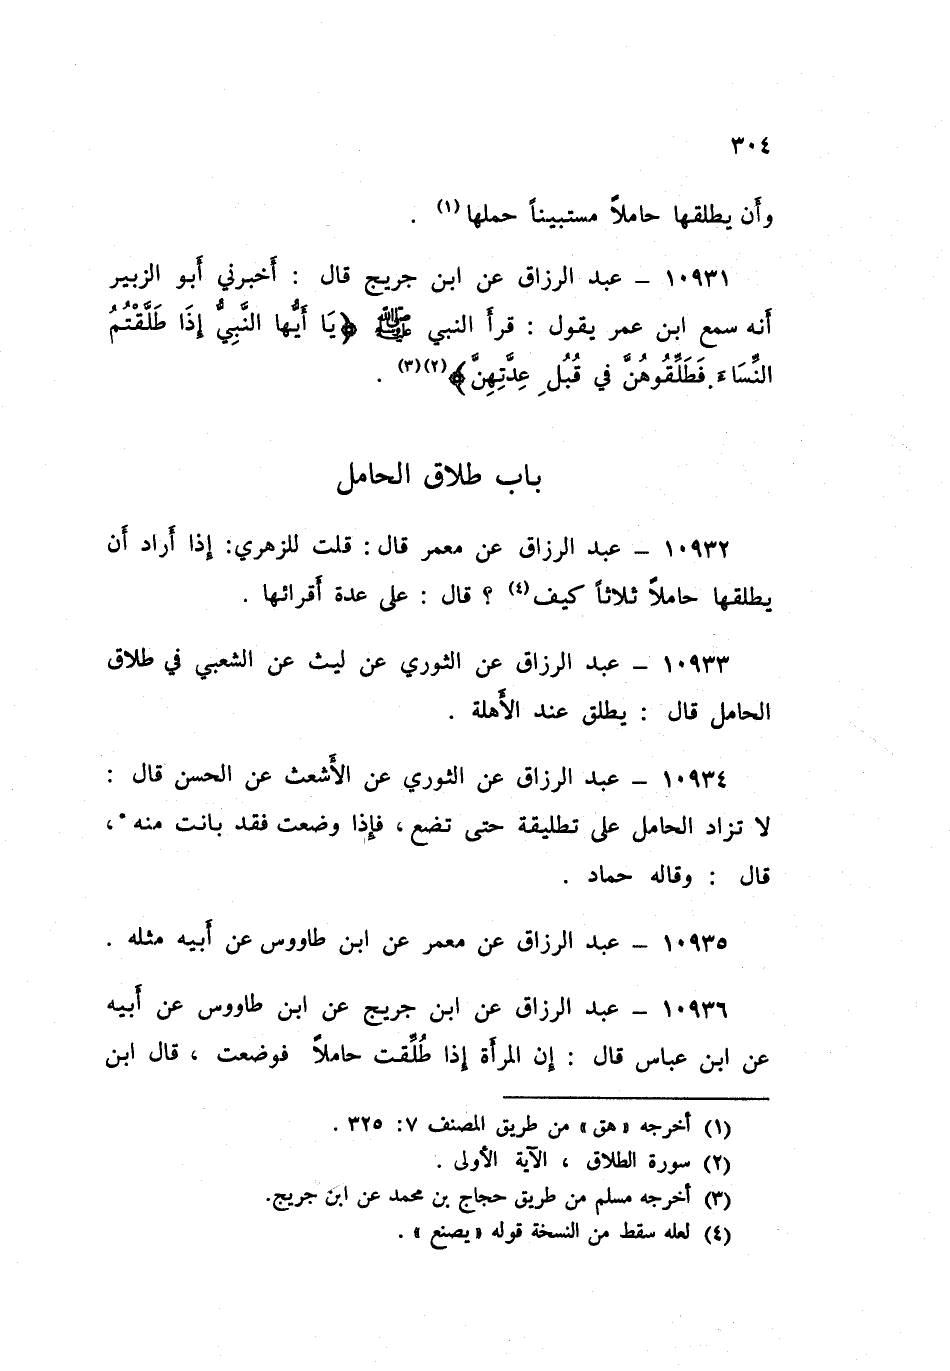 ٣٠٤
وأَن يطلقها حاملاً مستبيناً حملها(١) .
١٠٩٣١ – عبد الرزاق عن ابن جريج قال : أَخبرني أَبو الزبير
أَنه سمع ابن عمر يقول : قرأَ النبي ﷺ ﴿يَا أَيُّها النَّبِيُّ إِذَا طَلَّقْتُمُ
النِّسَاءَ فَطَلِّقُوهُنَّ في قُبُلِ عِدَّتِهِنَّ﴾(٢)(٣) .
باب طلاق الحامل
١٠٩٣٢ – عبد الرزاق عن معمر قال : قلت للزهري: إِذا أَراد أَن
يطلقها حاملاً ثلاثاً كيف(٤) ؟ قال : على عدة أَقرائها .
١٠٩٣٣ – عبد الرزاق عن الثوري عن ليث عن الشعبي في طلاق
الحامل قال : يطلق عند الأَهلة .
١٠٩٣٤ – عبد الرزاق عن الثوري عن الأَشعث عن الحسن قال :
لا تزاد الحامل على تطليقة حتى تضع ، فإِذا وضعت فقد بانت منه ،
قال : وقاله حماد .
١٠٩٣٥ – عبد الرزاق عن معمر عن ابن طاووس عن أَبيه مثله .
١٠٩٣٦ – عبد الرزاق عن ابن جريج عن ابن طاووس عن أَبيه
عن ابن عباس قال : إِن المرأَة إِذا طُلِّقت حاملاً فوضعت ، قال ابن
(١) أخرجه «هق» من طريق المصنف ٧: ٣٢٥ .
(٢) سورة الطلاق ، الآية الأولى .
(٣) أخرجه مسلم من طريق حجاج بن محمد عن ابن جريج.
(٤) لعله سقط من النسخة قوله «يصنع» .